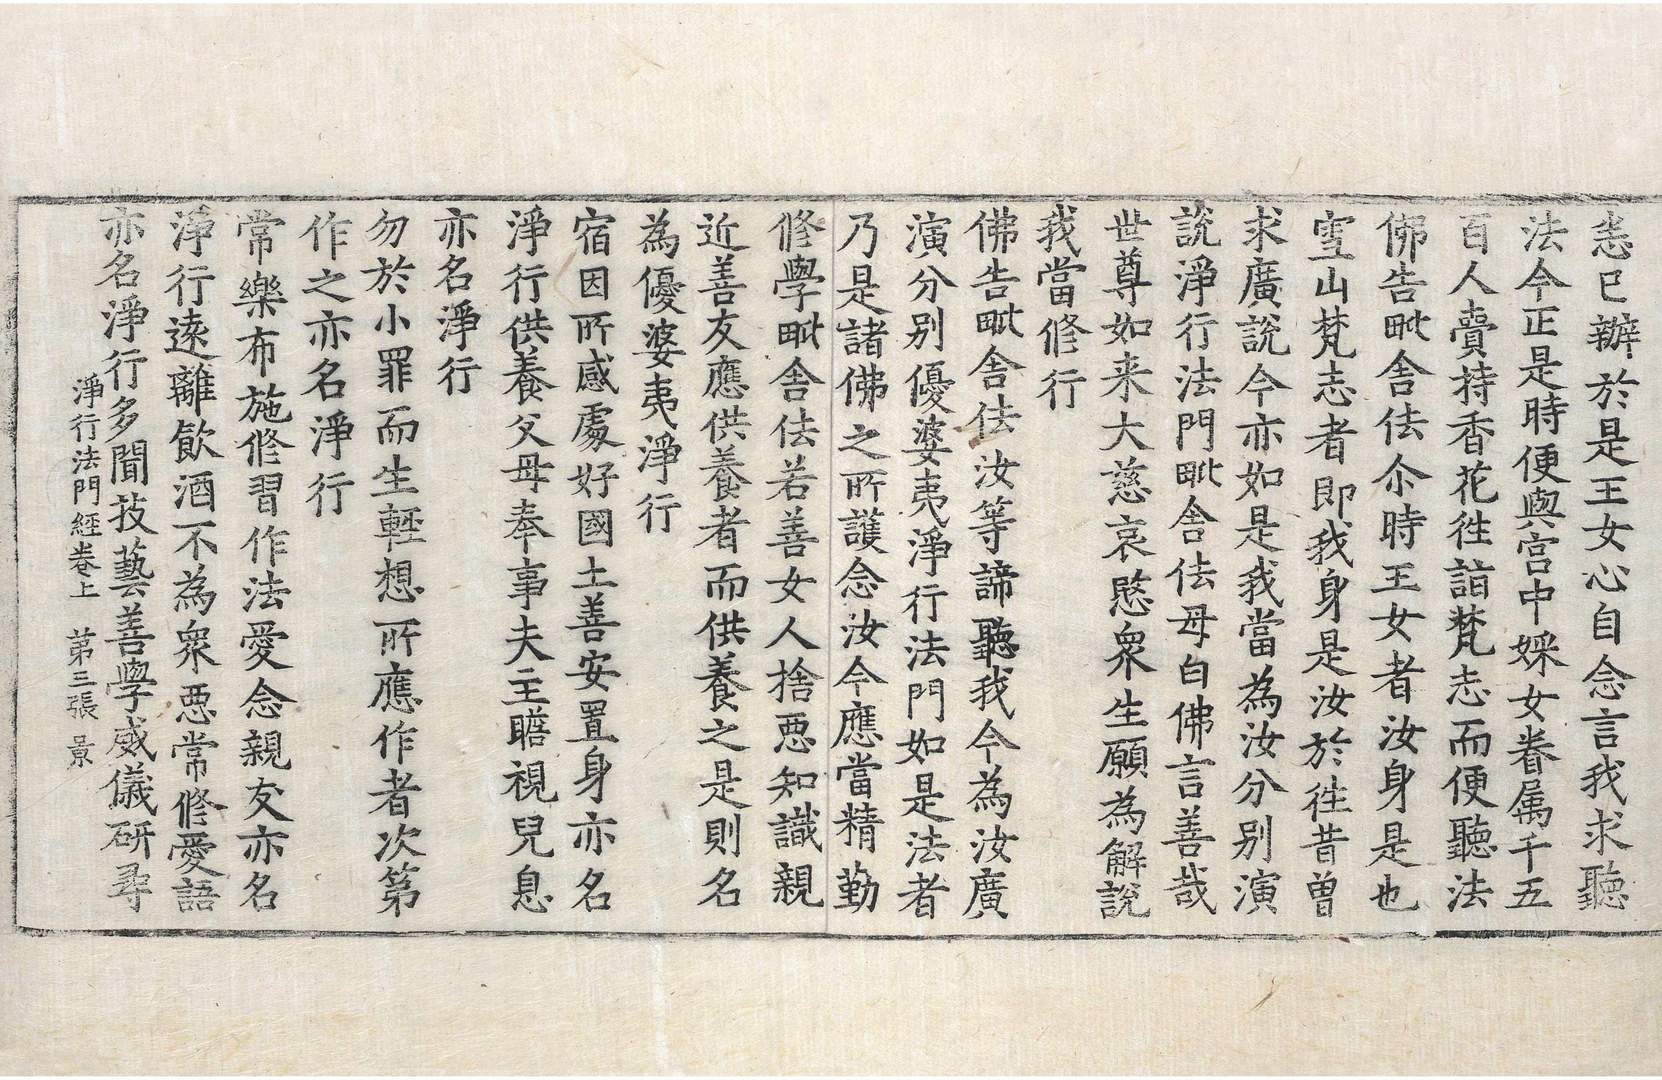 恙已辦於是王女心自念言我求聽
法今正是時便與宮中婇女眷属千五
百人賷持香花徃詣梵志而便聽法
佛告毗舍佉尒時王女者汝身是也
雪山梵志者即我身是汝於徃昔曾
求廣說今亦如是我當為汝分別演
說淨行法門毗舍佉母白佛言善哉
世尊如来大慈哀愍衆生願為解說
我當修行
佛告毗舍佉汝等諦聽我今為汝廣
演分別優婆夷淨行法門如是法者
乃是諸佛之所護念汝今應當精勤
修學毗舍佉若善女人捨惡知識親
近善友應供養者而供養之是則名
為優婆夷淨行
宿因所感處好國土善安置身亦名
淨行供養父母奉事夫主瞻視兒息
亦名淨行
勿於小罪而生輕想所應作者次第
作之亦名淨行
常樂布施修習作法愛念親友亦名
淨行遠離飲酒不為衆惡常修愛語
亦名淨行多聞技藝善學威儀研尋
淨行法門經卷上　第三張　景